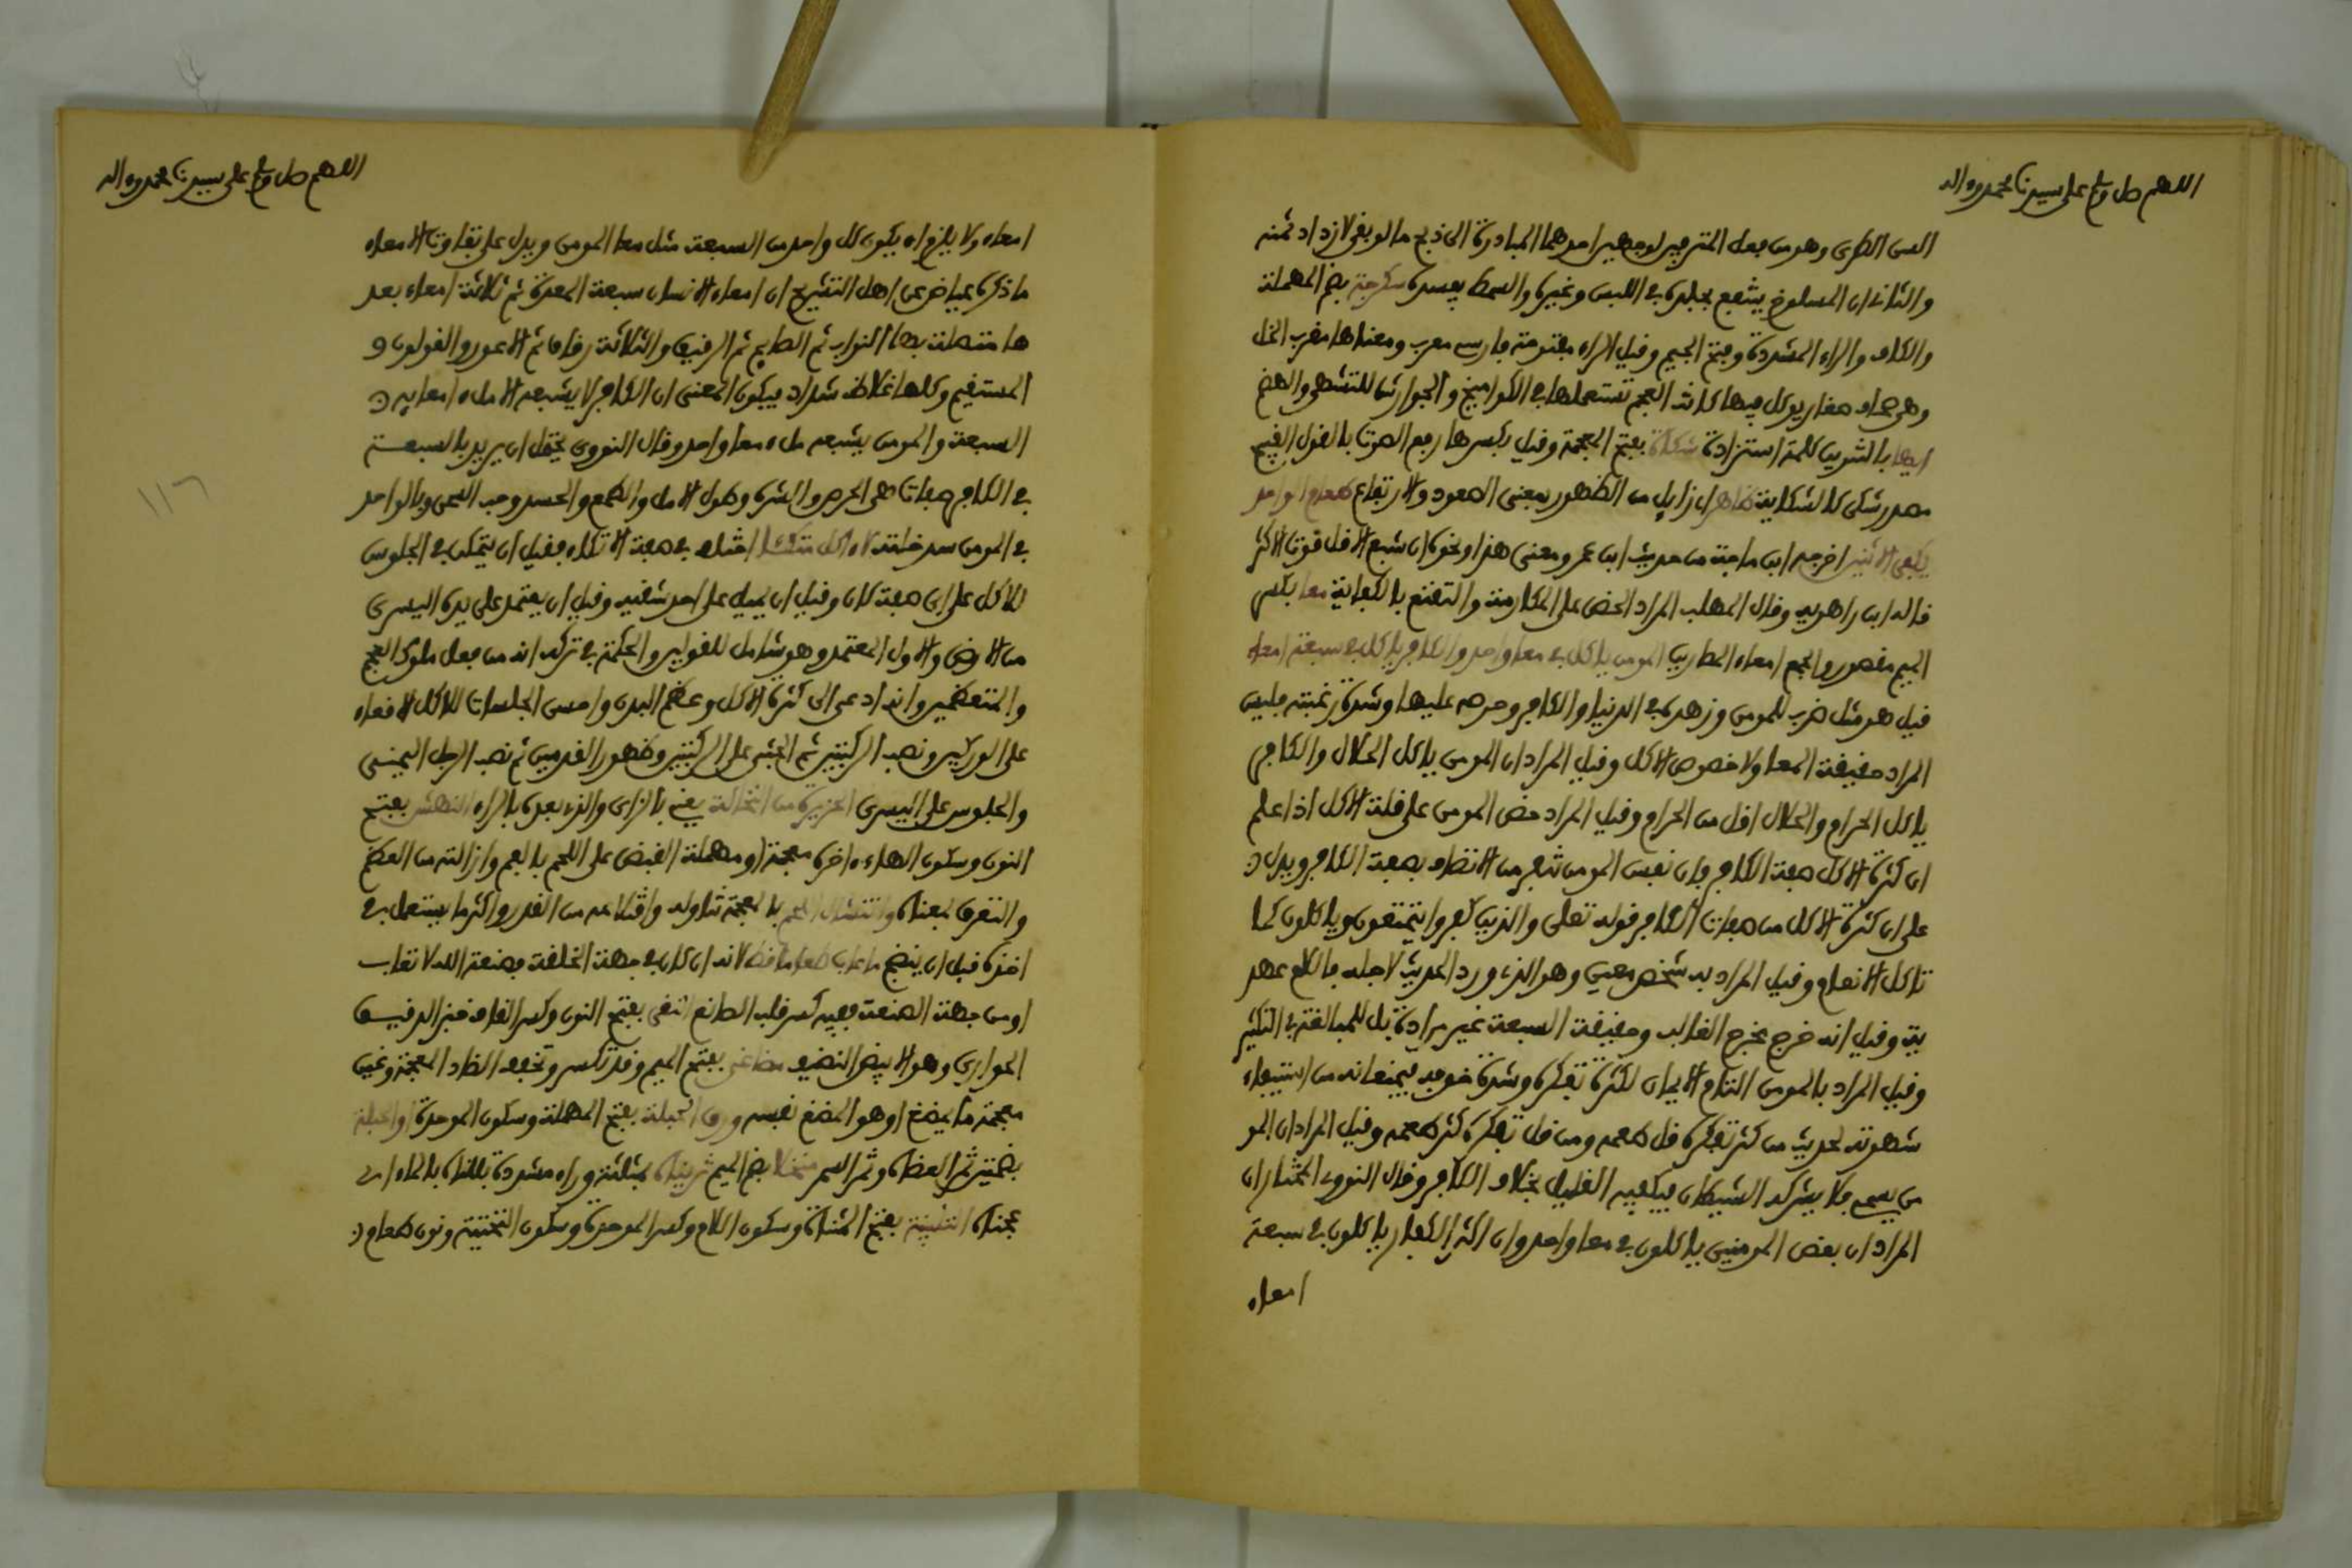 اللهم صل وسلم على سيدنا محمد وءاله
السن الطرى وهو من فعل المترفين لوجهين احدهما المبادرة الى ذبح ما لو بقي لازداد ثمنه
والثاني ان المسلوخ ينتفع بجلده في اللبس وغيره والسمط يفسده سكرجة بضم المهملة
والكاف والراء المشددة وفتح الجيم وقيل الراء مفتوحة فارسي معرب ومعناها مقرب الخل
وهي صحاف صغار يوكل فيها كانت العجم تستعملها في الكواميخ والجوارش للتشهي والهضم
ايها بالتنوين كلمة استزادة شكاة بفتح المعجمة وقيل بكسرها رفع الصوت بالقول القبيح
مصدر شكى كالشكاية ظاهر اي زايل من الظهور بمعنى الصعود والارتفاع طعام الواحد
يكفي الاثنين اخرجه ابن ماجة من حديث ابن عمر ومعنى هذا ونحوه ان شبع الاقل قوت الاكثر
قاله ابن راهويه وقال المهلب المراد الحض على المكارمة والتقنع بالكفاية معا بكسر
الميم مقصور والجمع امعاء المطارين المومن ياكل في معا واحد والكافر ياكل في سبعة امعاء
قيل هو مثل ضرب للمومن وزهده في الدنيا والكافر وحرصه عليها وشدة رغبته فليس
المراد حقيقة المعا ولا خصوص الاكل وقيل المراد ان المومن ياكل الحلال والكافر
ياكل الحرام والحلال اقل من الحرام وقيل المراد حض المومن على قلة الاكل اذا علم
ان كثرة الاكل صفة الكافر فان نفس المومن تنفر من الاتصاف بصفة الكافر ويدل
على ان كثرة الاكل من صفات الكافر قوله تعلى والذين كفروا يتمتعون وياكلون كما
تاكل الانعام وقيل المراد به شخص معين وهو الذي ورد الحديث لاجله فاللام عهد
ية وقيل انه خرج مخرج الغالب وحقيقة السبعة غير مرادة بل للمبالغة في التكثير
وقيل المراد بالمومن التام الايمان لكثرة تفكره وشدة خوفه فيمنعانه من استيفاء
شهوته لحديث من كثر تفكره قل طعمه ومن قل تفكره كثر طعمه وقيل المراد ان المو
من يسمي فلا يشركه الشيطان فيكفيه القليل بخلاف الكافر وقال النووي المختار ان
المراد ان بعض المومنين ياكلون في معا واحد وان اكثر الكفار ياكلون في سبعة
امعاء
اللهم صل وسلم على سيدنا محمد وءاله
امعاء ولا يلزم ان يكون كل واحد من السبعة مثل معا المومن ويدل على تفاوت الامعاء
ما ذكره عياض عن اهل التشريح ان امعاء الانسان سبعة المعدة ثم ثلاثة امعاء بعد
ها متصلة بها البواب ثم الصايم ثم الرقيق والثلاثة رقاق ثم الاعور والقولون و
المستقيم وكلها غلاظ شداد فيكون المعنى ان الكافر لا يشبعه الا ملء امعايه
السبعة والمومن يشبعه ملء معا واحد وقال النووي يحتمل ان يريد بالسبعة
في الكافر صفات هي الحرص والشره وطول الامل والطمع والحسد وحب السمن وبالواحد
في المومن سد خلته لا ءاكل متكئا اختلف في صفة الاتكاء فقيل ان يتمكن في الجلوس
للاكل على اي صفة كان وقيل ان يميل على احد شقيه وقيل ان يعتمد على يده اليسرى
من الارض والاول المعتمد وهو شامل للقولين والحكمة في تركه انه من فعل ملوك العجم
والمتعظمين وانه ادعى الى كثرة الاكل وعظم البدن واحسن الجلسات للاكل الاقعاء
على الوركين ونصب الركبتين ثم الجثي على الركبتين وظهور القدمين ثم نصب الرجل اليمنى
والجلوس على اليسرى الخزيرة من النخالة يعني بالزاي والذي بعده بالراء النهش بفتح
النون وسكون الهاء ءاخره معجمة او مهملة القبض على اللحم بالفم وازالته من العظم
والتعرق بمعناه وانتشال اللحم بالمعجمة تناوله واقتلاعه من القدر واكثر ما يستعمل في
اخذه قبل ان ينضج ما عاب طعاما قط لانه ان كان في جهة الخلقة فصنعة الله لا تعاب
او من جهة الصنعة ففيه كسر قلب الصانع النقي بفتح النون وكسر القاف خبز الدقيق
الحوارى وهو الابيض النضيف مضاغي بفتح الميم وقد تكسر وتخفيف الضاد المعجمة وغين
معجمة ما يمضغ او هو المضغ نفسه ورق الحبلة بفتح المهملة وسكون الموحدة او الحبلة
بضمتين ثمر العضاه وثمر السمر منخلا بضم الميم ثريناه بمثلثة وراء مشددة بللناه بالماء اي
عجناه التلبينة بفتح المثناة وسكون اللام وكسر الموحدة وسكون التحتية ونون طعام
١١٦